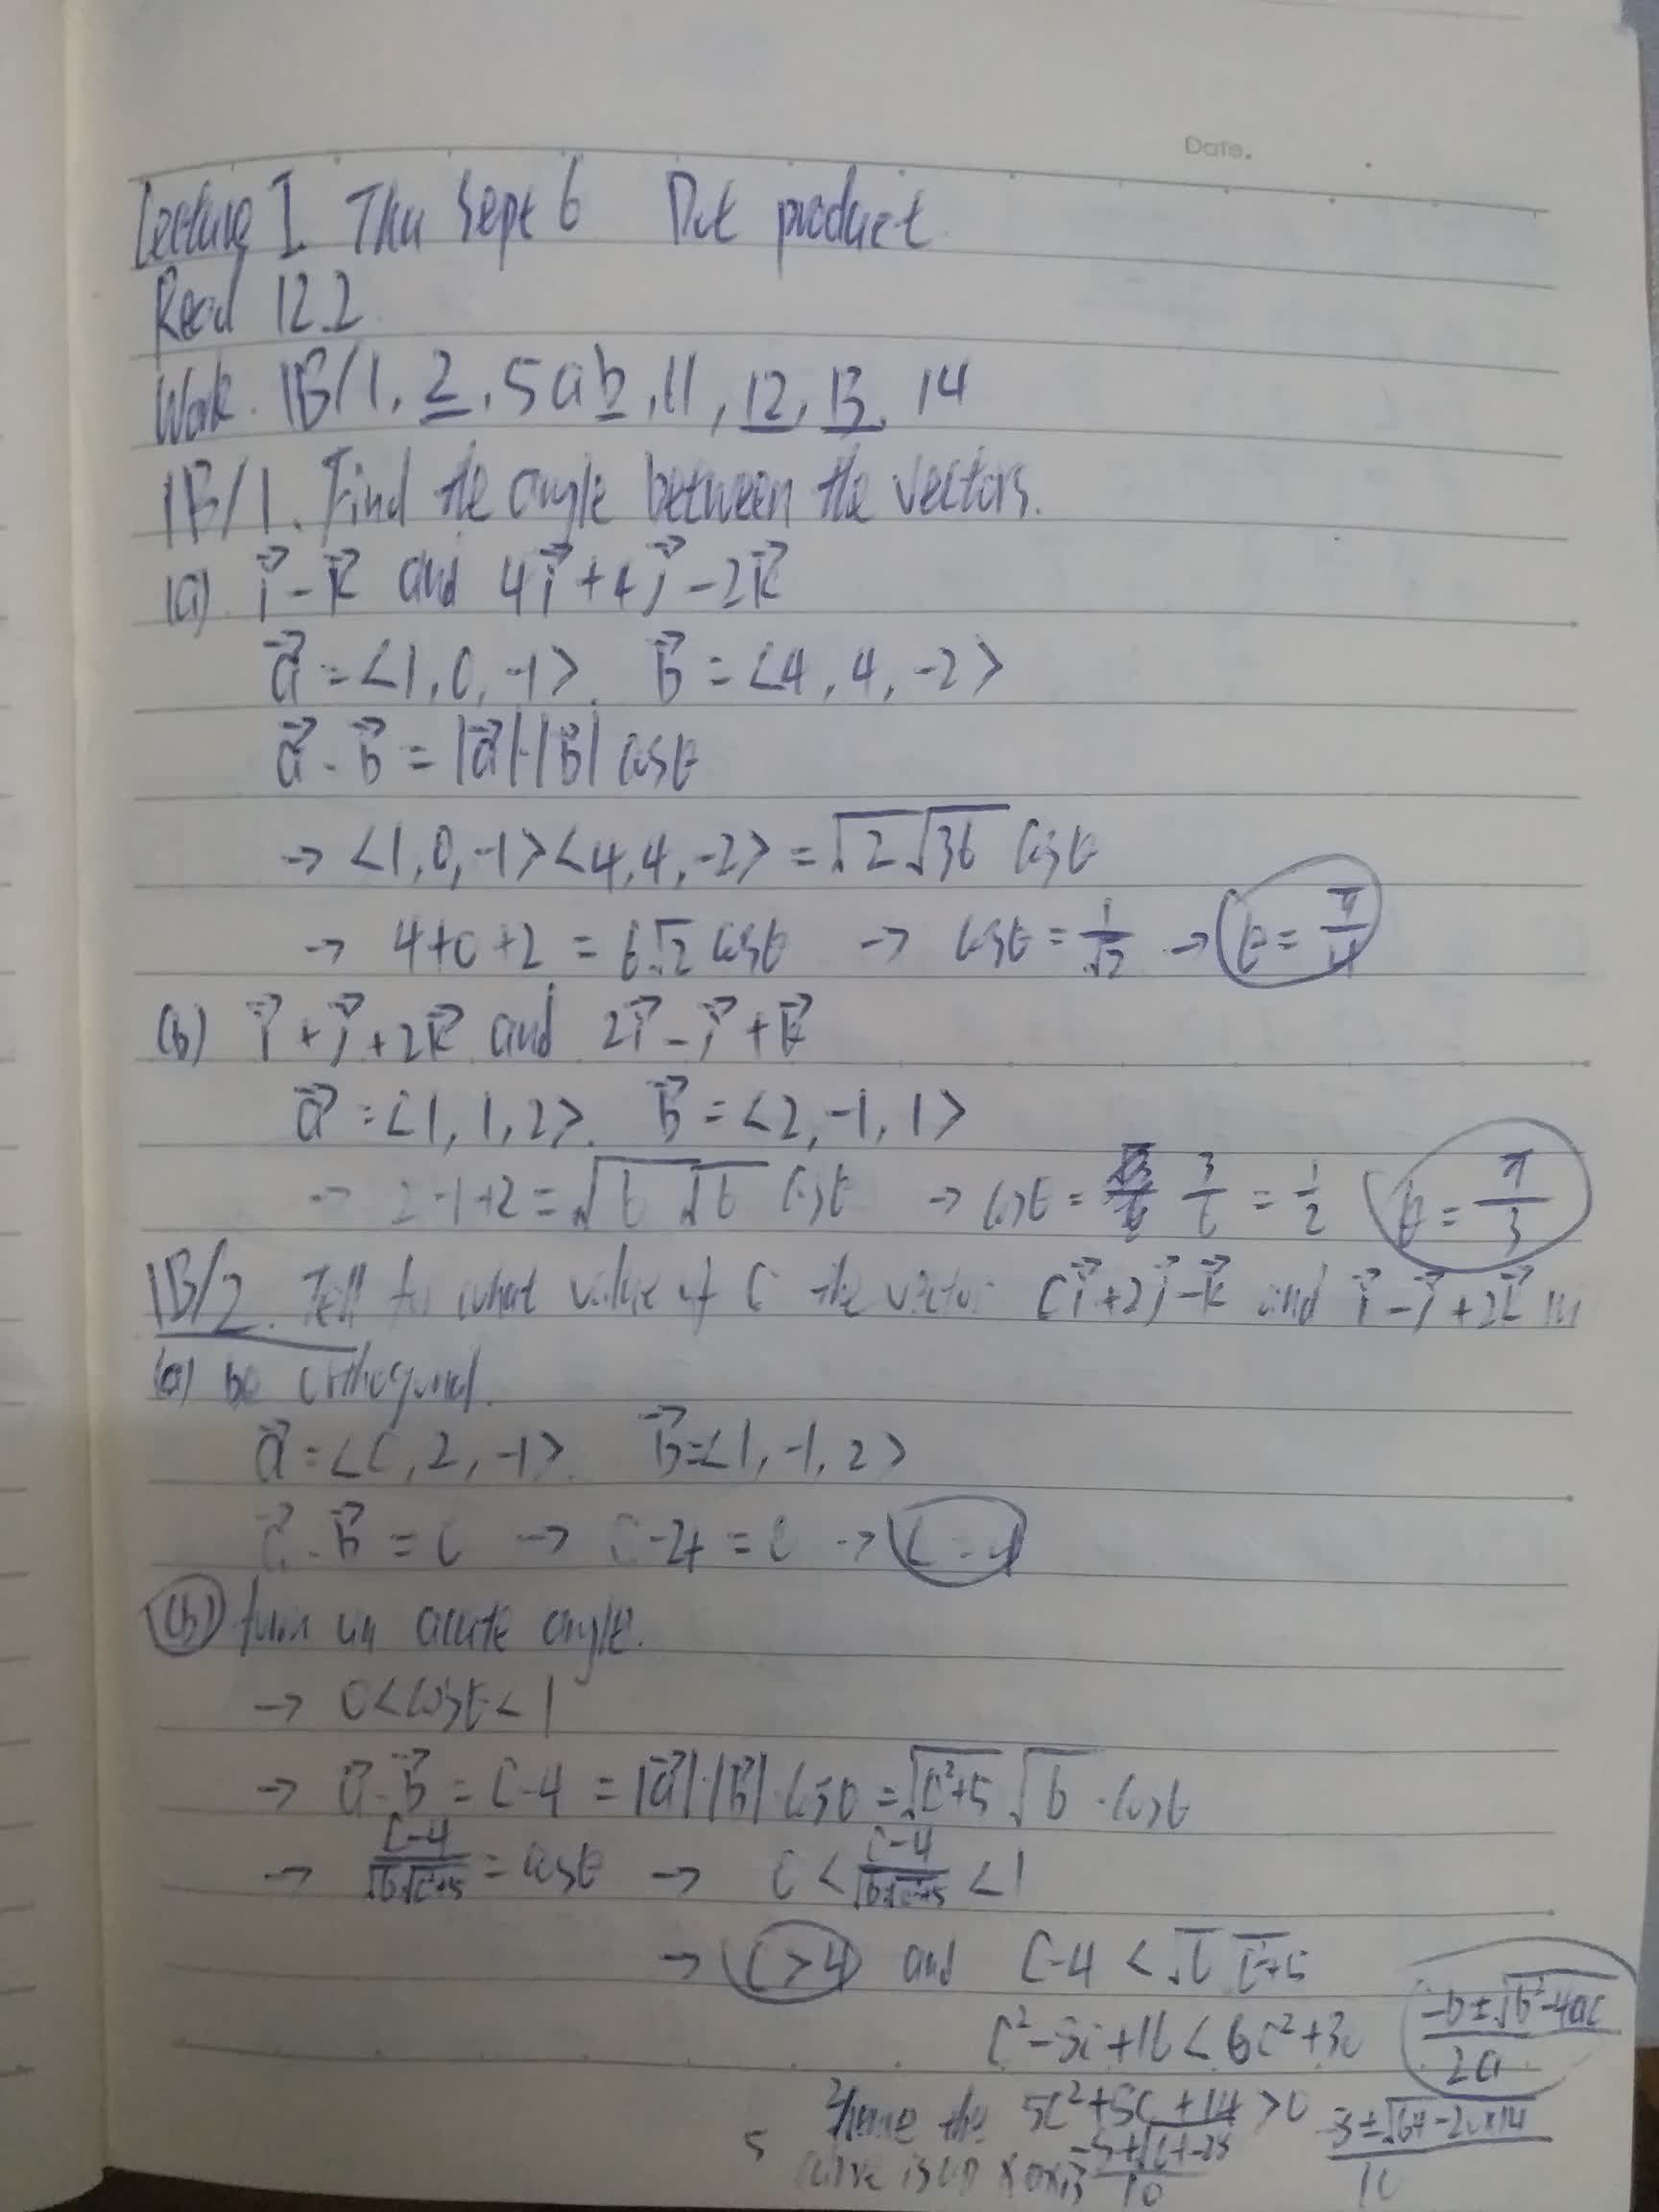 Date.
Lecture 1. Thu Sept 6 Dot product
Read 12.2
Work. 1B/1, 2, 5ab, 11, 12, 13, 14
1B/1. Find the angle between the vectors.
(a) i⃗ - k⃗ and 4i⃗ + 4j⃗ - 2k⃗
a⃗ = <1, 0, -1>. b⃗ = <4, 4, -2>
a⃗ · b⃗ = |a⃗|·|b⃗| cosθ
→ <1, 0, -1><4, 4, -2> = √2√36 cosθ
→ 4+0+2 = 6√2 cosθ → cosθ = 1/√2 → θ = π/4
(b) i⃗ + j⃗ + 2k⃗ and 2i⃗ - j⃗ + k⃗
a⃗ = <1, 1, 2>. b⃗ = <2, -1, 1>
→ 2-1+2 = √6√6 cosθ → cosθ = 3/6 = 1/2 θ = π/3
1B/2. Tell for what value of c the vector ci⃗ + 2j⃗ - k⃗ and i⃗ - j⃗ + 2k⃗
(a) be orthogonal.
a⃗ = <c, 2, -1>. b⃗ = <1, -1, 2>
a⃗ · b⃗ = 0 → c-4 = 0 → c = 4
(b) form an acute angle.
→ 0 < cosθ < 1
→ a⃗ · b⃗ = c-4 = |a⃗|·|b⃗|·cosθ = √c²+5 √6 · cosθ
→ c-4/√6√c²+5 = cosθ → 0 < c-4/√6√c²+5 < 1
→ c > 4 and c-4 < √6 √c²+5
c²-8c+16 < 6c²+30 -b±√b²-4ac/2a
5c²+8c+14 > 0 -8±√64-20×14/10